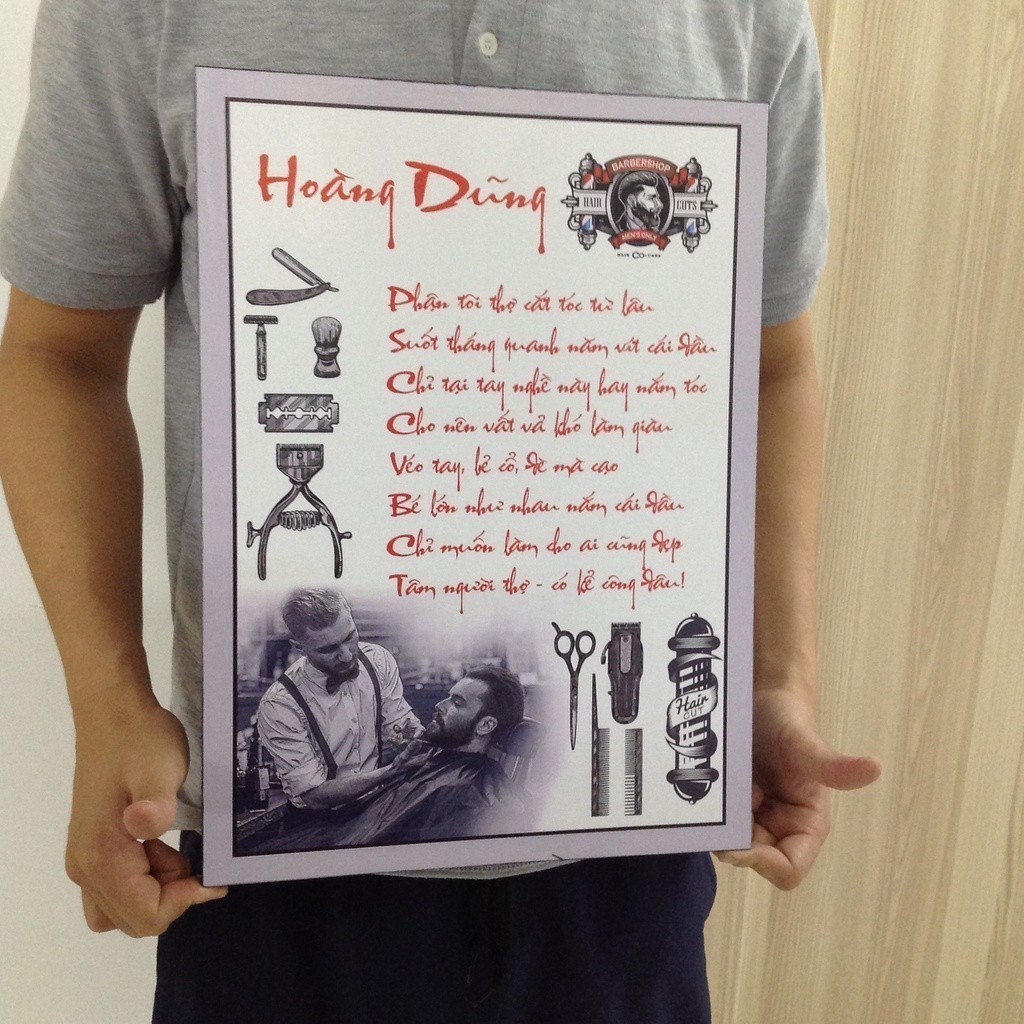 Hoàng Dũng
BARBERSHOP
HAIR CUTS
MEN'S ONLY
Phận tôi thợ cắt tóc từ lâu
Suốt tháng quanh năm vít cái đầu
Chỉ tại tay nghề này hay nắm tóc
Cho nên vất vả khó làm giàu
Véo tay, bẻ cổ, đè mà cạo
Bé lớn như nhau nắm cái đầu
Chỉ muốn làm cho ai cũng đẹp
Tâm người thợ - có kể công đâu!
Hair
CUT